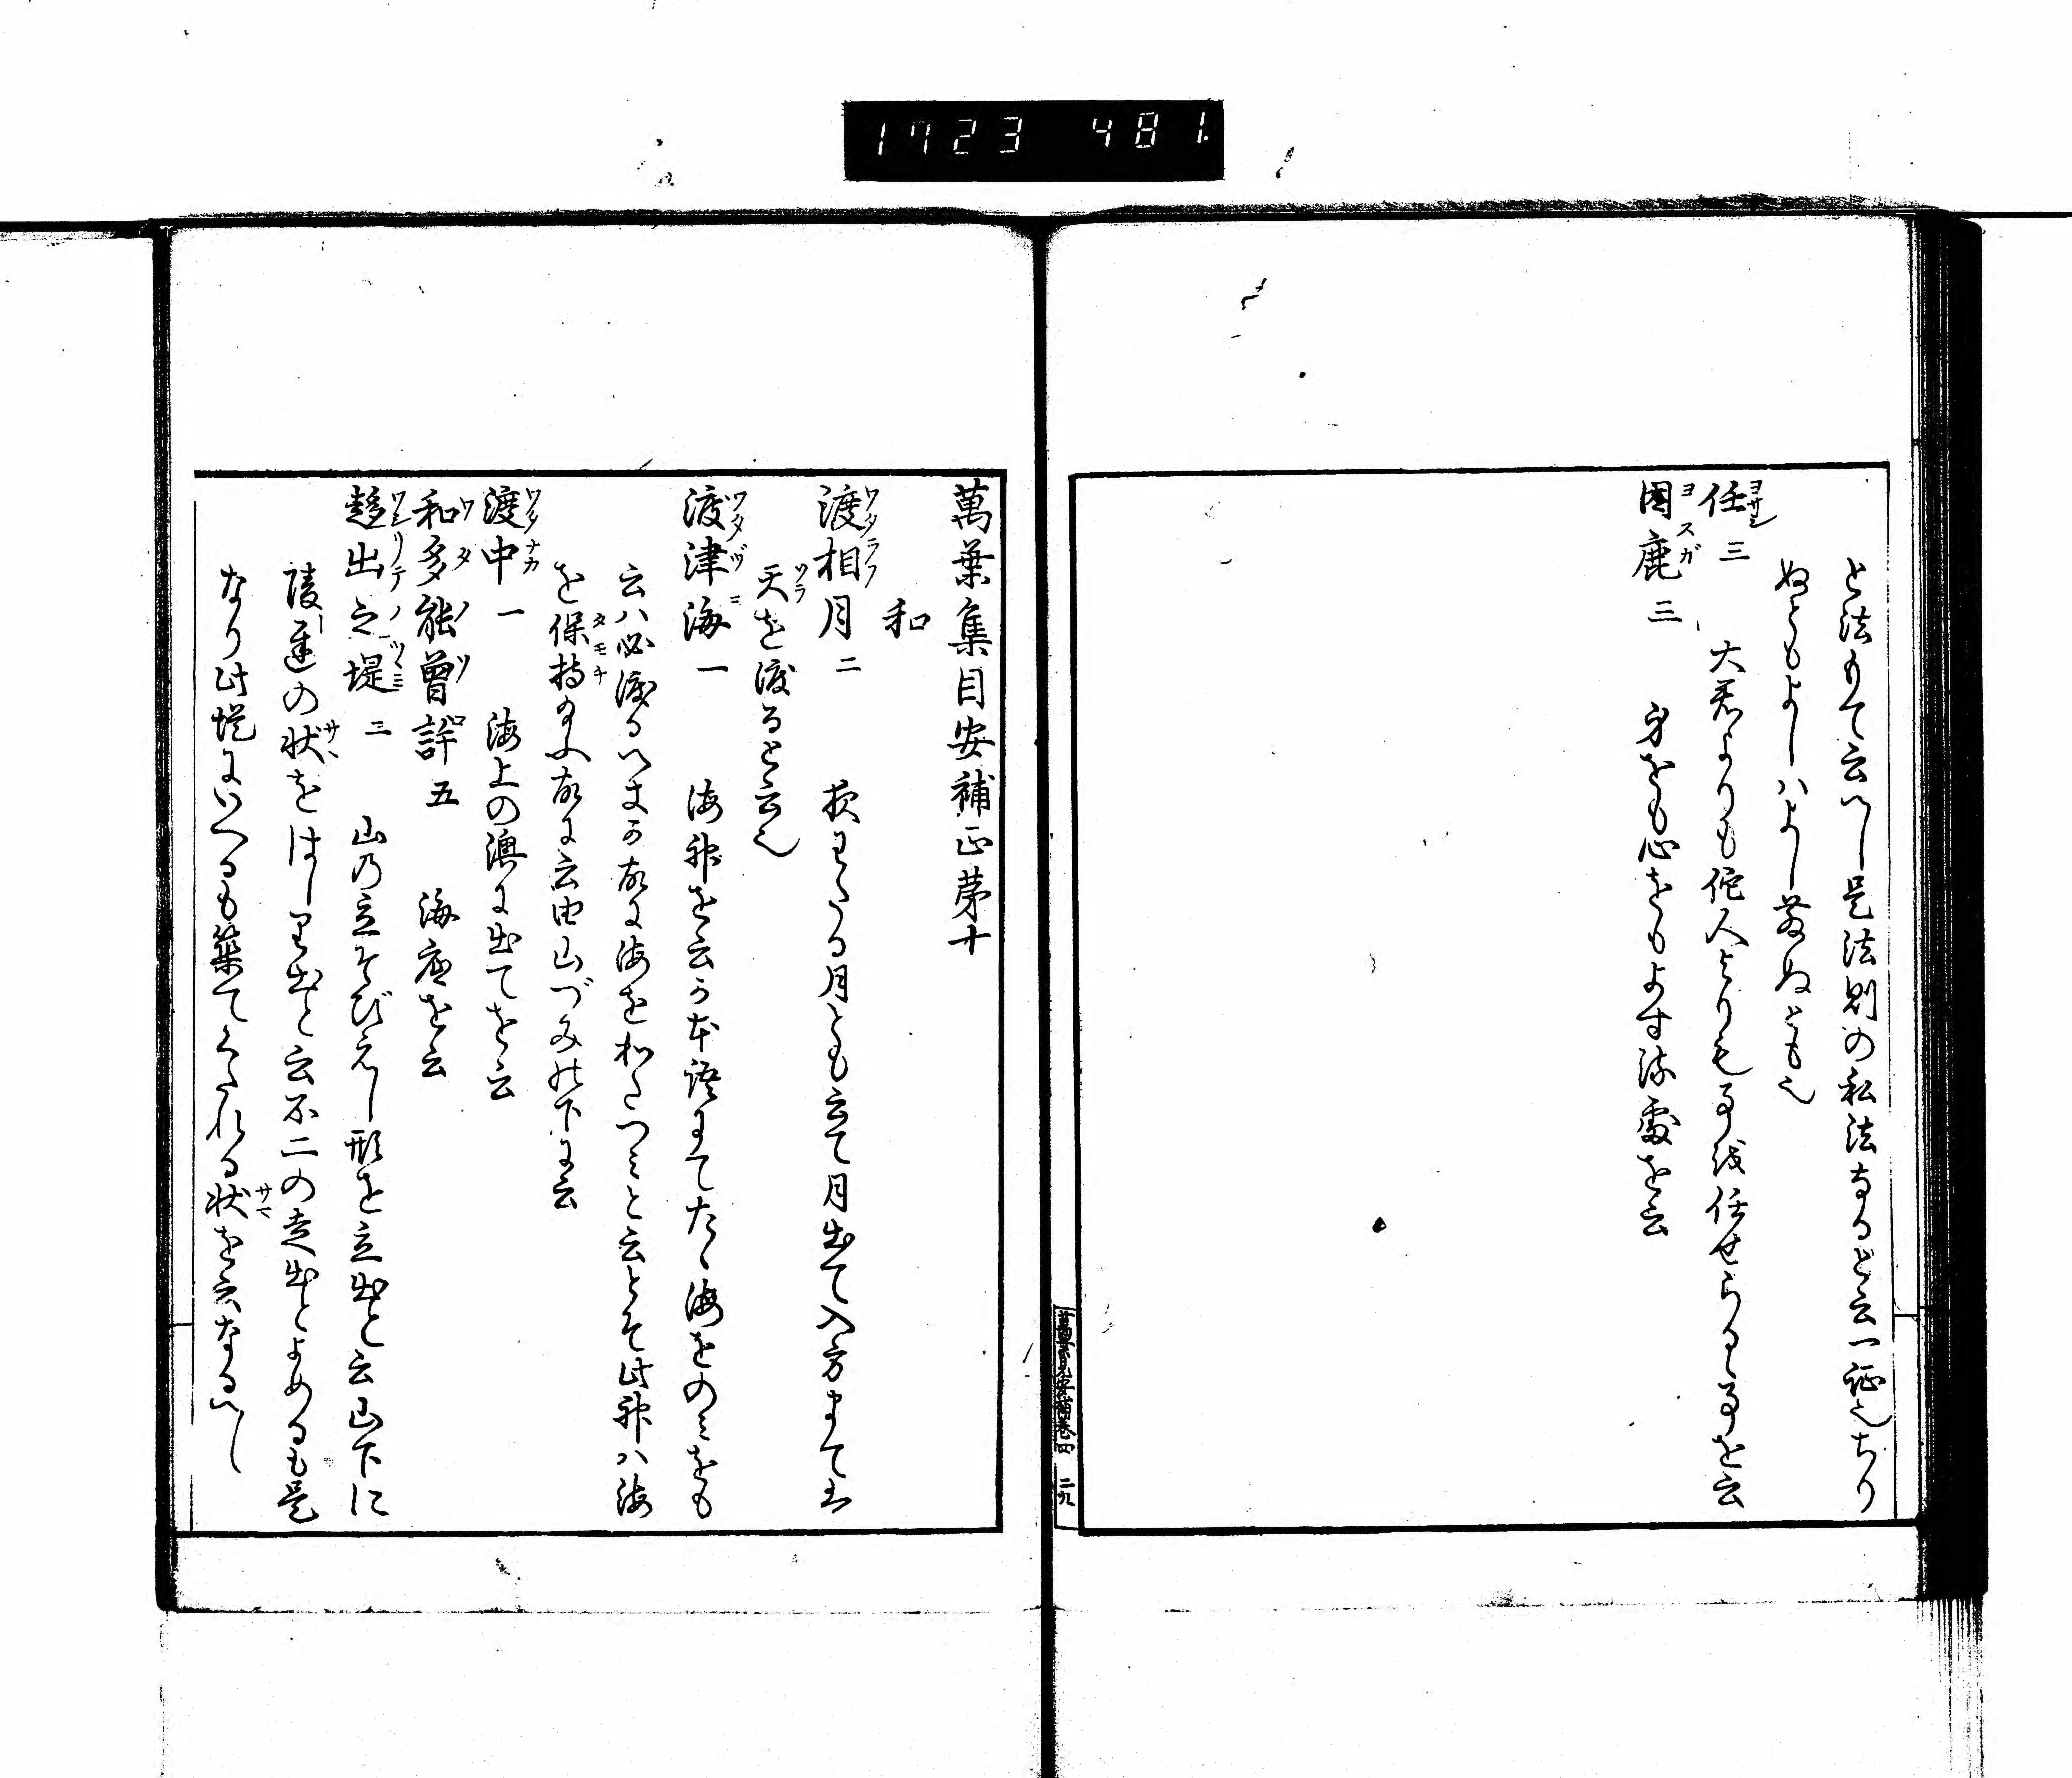 1723 481.
と法もて云へし是法則の私法なるを云一証也ちり
ぬともよしハよし落ぬとも也
任三 大君よりも佗人よりも事を任せらるゝ事を云
ヨサシ
因鹿三 身をも心をもよする処を云
ヨスガ
萬葉集目安補正第十
和
渡相月二 夜わたる月とも云て月出て入方まて
ワタラフ
天を渡ると云也
ソラ
渡津海一 海神を云か本語にてたゝ海をのミをも
ワタツミ
云ハ必渡る 故に海を わたつミと云とそ此神ハ海
を保持 故に云由山づみの下に云
タモチ
渡中一 海上の澳に出てを云
ワタナカ
和多能曽許五 海底を云
ワタノソコ
趍出之堤三 山の立そびえし形を立出と云山下に
ワシリデノツツミ
陵遅の状をはしり出と云不二の走出とよめるも是
サマ
なり此堤にいへるも築てくたれる状を云なるへし
サマ